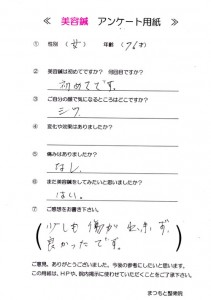 ≪ 美容鍼 アンケート用紙 ≫
① 性別 ( 女 ) 年齢 ( 76 才)
② 美容鍼は初めてですか? 何回目ですか?
初めてです。
③ ご自分の顔で気になるところはどこですか?
シワ
④ 変化や効果はありましたか?
⑤ 痛みはありましたか?
なし
⑥ また美容鍼をしてみたいと思いましたか?
はい。
⑦ ご感想をお書き下さい。
少しも傷が出来ず、
良かったです。
ご意見、ありがとうございました。今後の参考にしたいと思います。
この用紙は、HPや、院内掲示に使わせていただくことをご了承下さい。
まつもと整骨院